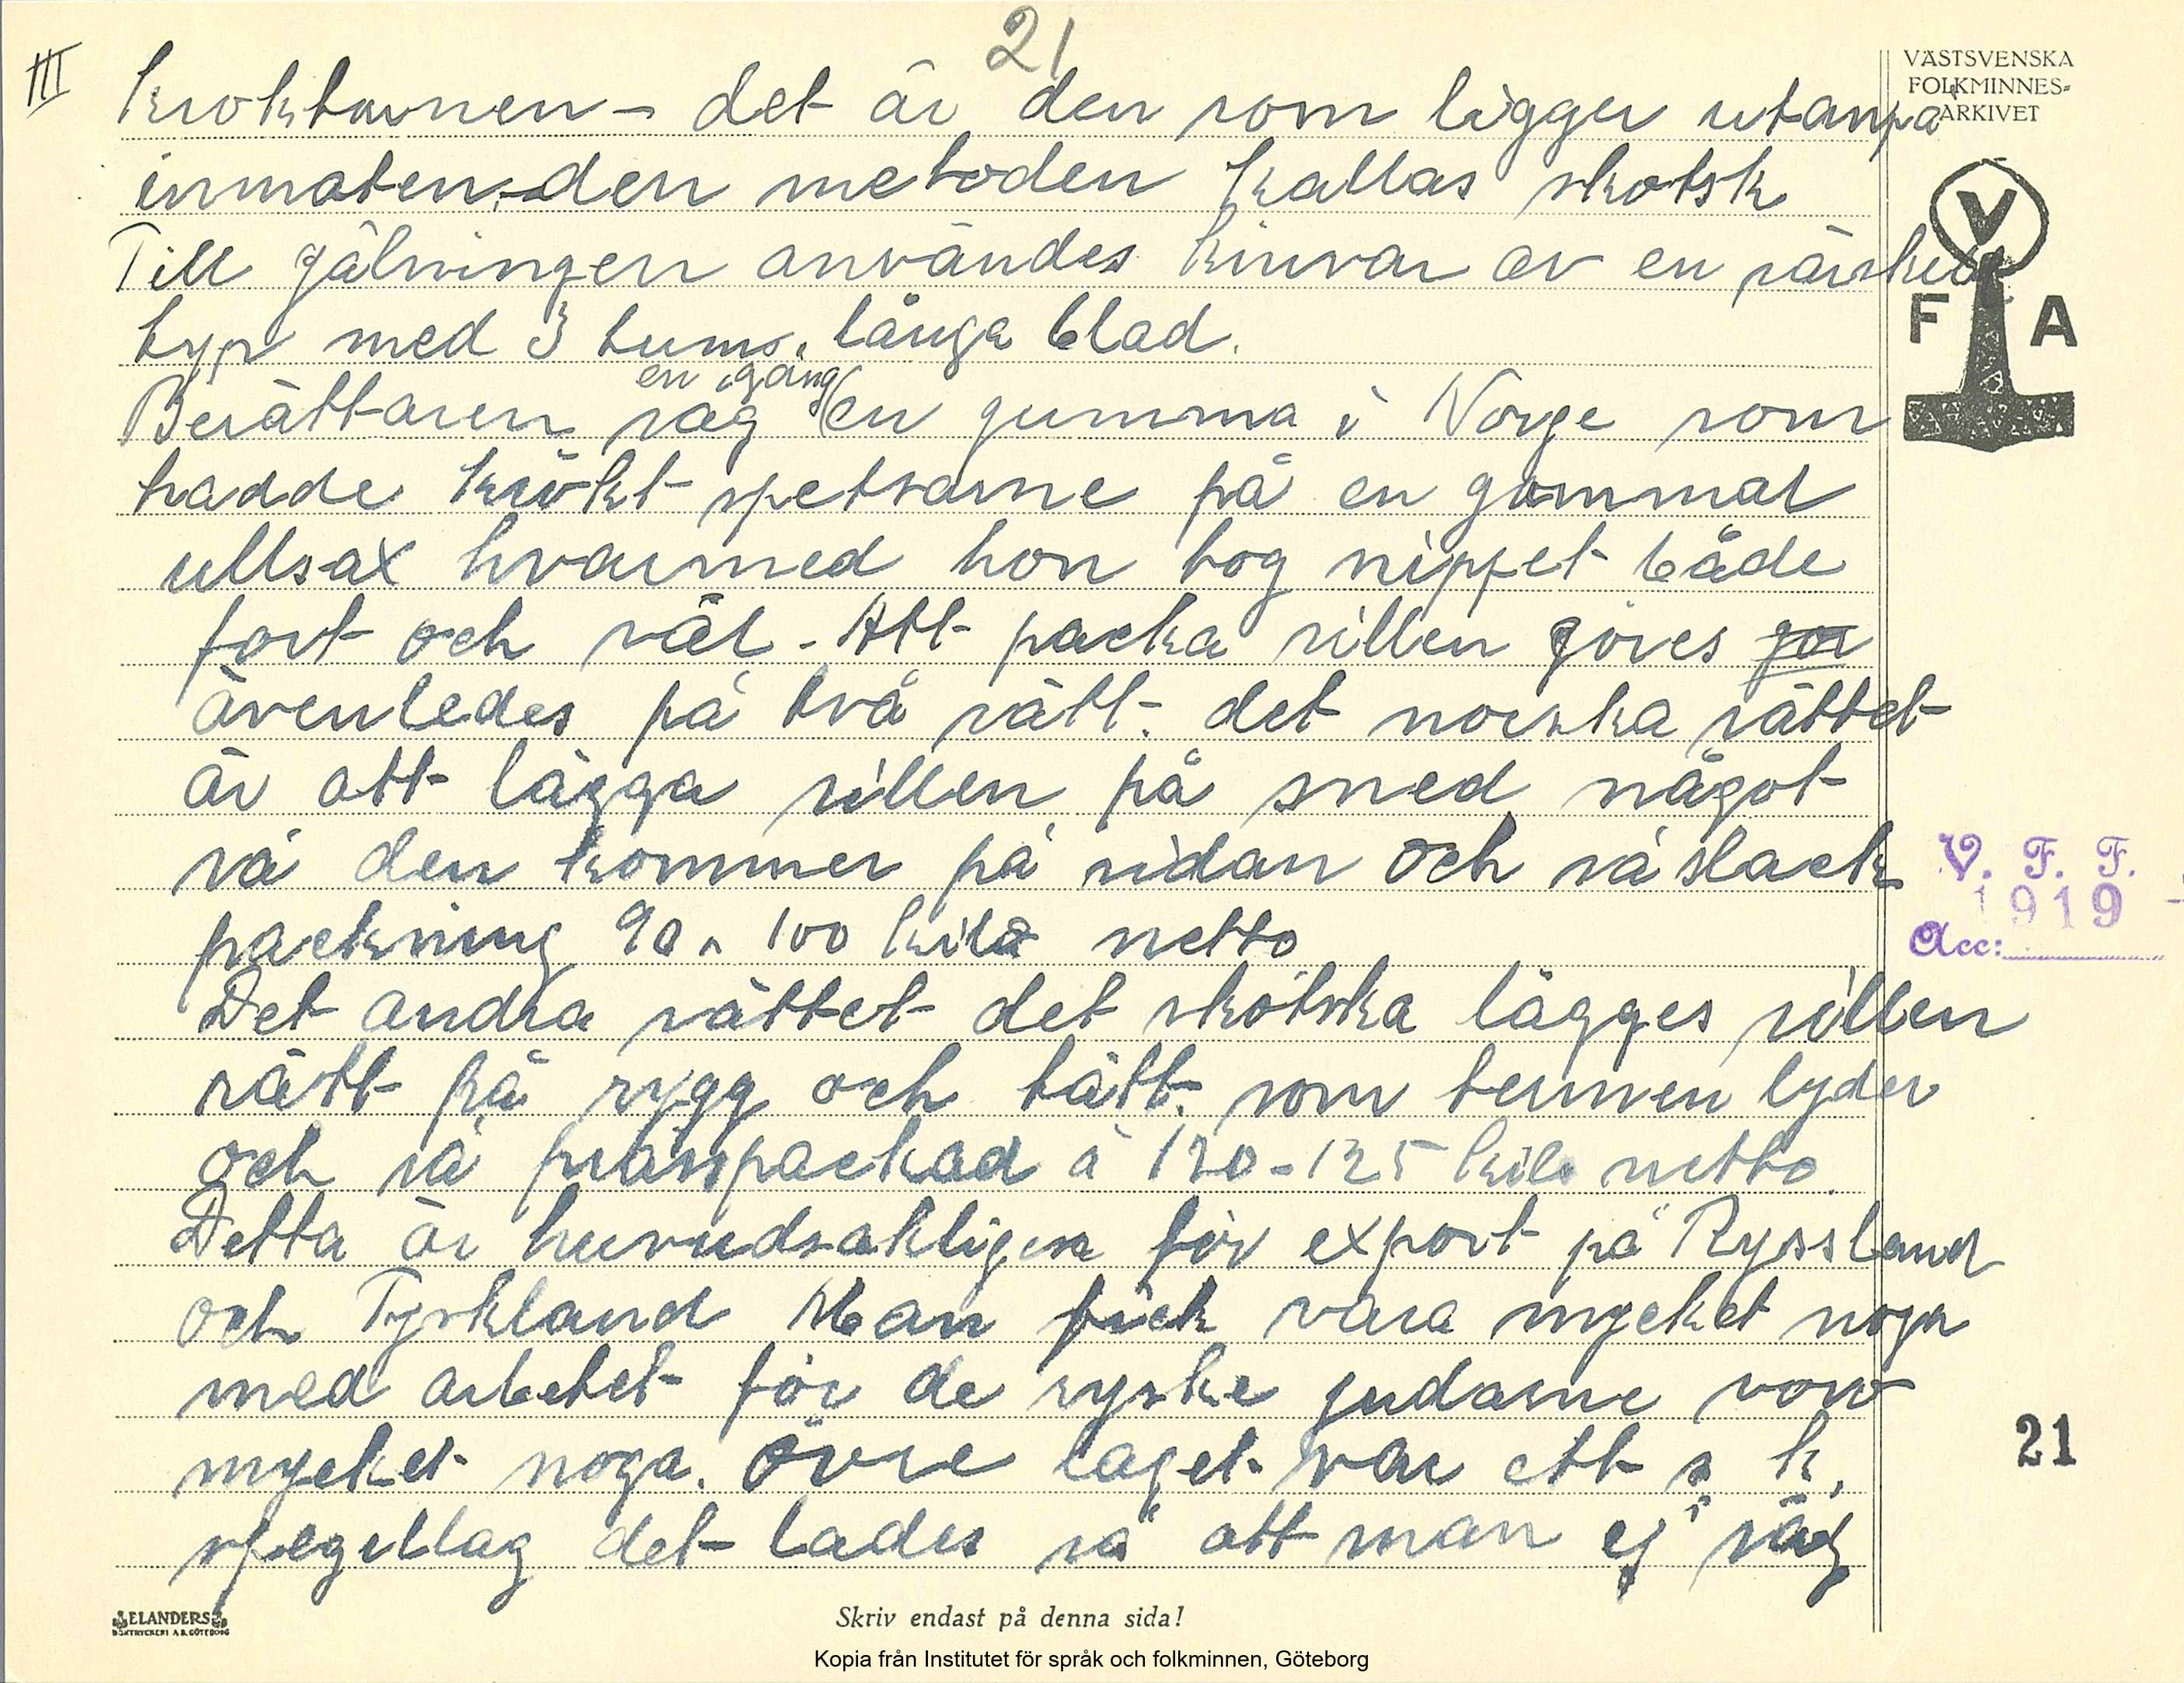 21
III
VÄSTSVENSKA
FOLKMINNES-
ARKIVET
kroktarmen - det är den som ligger utanpå
inmaten. den metoden kallas skotsk
Till gälningen användes knivar av en särskild
typ med 3 tums. långa blad.
en gång
Berättaren såg en gumma i Norge som
hadde krökt spetsarne på en gammal
ullsax hvarmed hon tog nippet både
fort och väl - Att packa sillen göres gör
ävenledes på två sätt. det norska sättet
är att lägga sillen på sned något
så den kommer på sidan och så slack
packning 90 a 100 kilo netto
Det andra sättet det skotska lägges sillen
rätt på rygg och tätt. som termen lyder
och så prässpackad à 120-125 kilo netto.
Detta är huvudsakligen för export på Ryssland
och Tyskland Man fick vara mycket noga
med arbetet för de ryske judarne voro
mycket noga. Övre laget var ett s. k.
spegellag det lades så att man ej såg
V
F A
V. F. F.
1919
Acc:
21
ELANDERS
BOKTRYCKERI A.B. GÖTEBORG
Skriv endast på denna sida!
Kopia från Institutet för språk och folkminnen, Göteborg